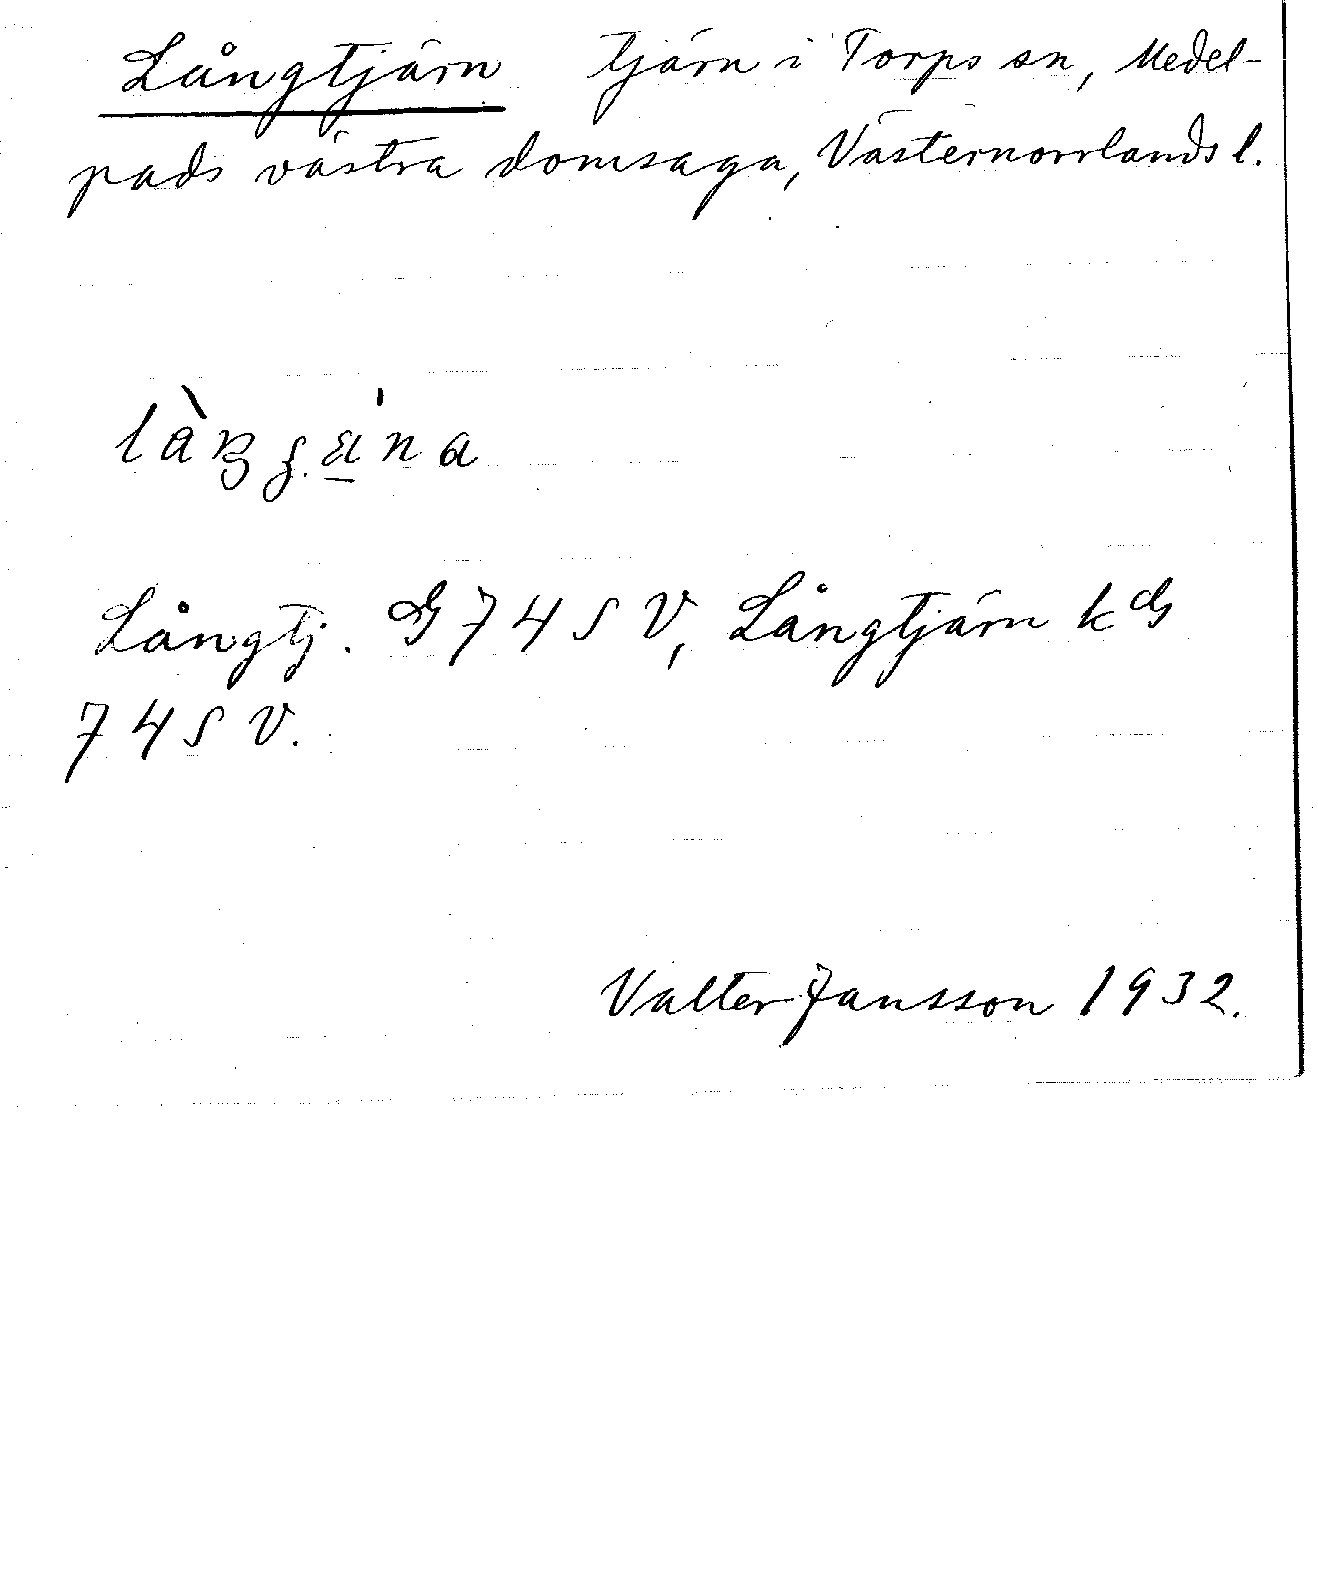 Långtjärn tjärn i Torps sn, Medel-
pads västra domsaga, Västernorrlands l.
Långtj. G 74 S V, Långtjärn k G
74 S V.
Valter Jansson 1932.